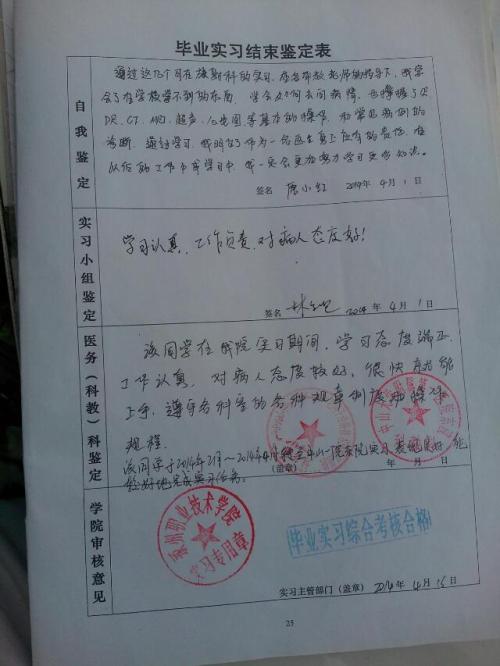 毕业实习结束鉴定表
自我鉴定
通过这几个月在放射科的实习,在各带教老师的指导下,我学
会了在学校学不到的东西,学会如何去问病情,也掌握了
DR、CT、MRI、超声、心电图等基本的操作和常见病例的
诊断。通过学习,我明白了作为一名医生肩上应有的责任,在
以后的工作中和学习中,我一定会更加努力学习更多知识。
签名 唐小红 2014年4月1日
实习小组鉴定
学习认真、工作负责,对病人态度好!
签名 2014年4月1日
医务(科教)科鉴定
该同学在我院实习期间,学习态度端正
工作认真,对病人态度较好,很快就能
上手,遵守各科室的各种规章制度和操作
规程。
该同学于2014年2月~2014年4月
(盖章) 年 月 日
较好地完成实习任务。
学院审核意见
职业技术学院
实习专用章
毕业实习综合考核合格
实习主管部门(盖章) 2014年4月15日
25